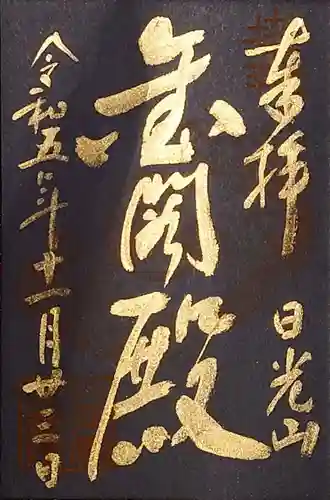 奉拝
日光山
金閣殿
令和五年十一月廿三日